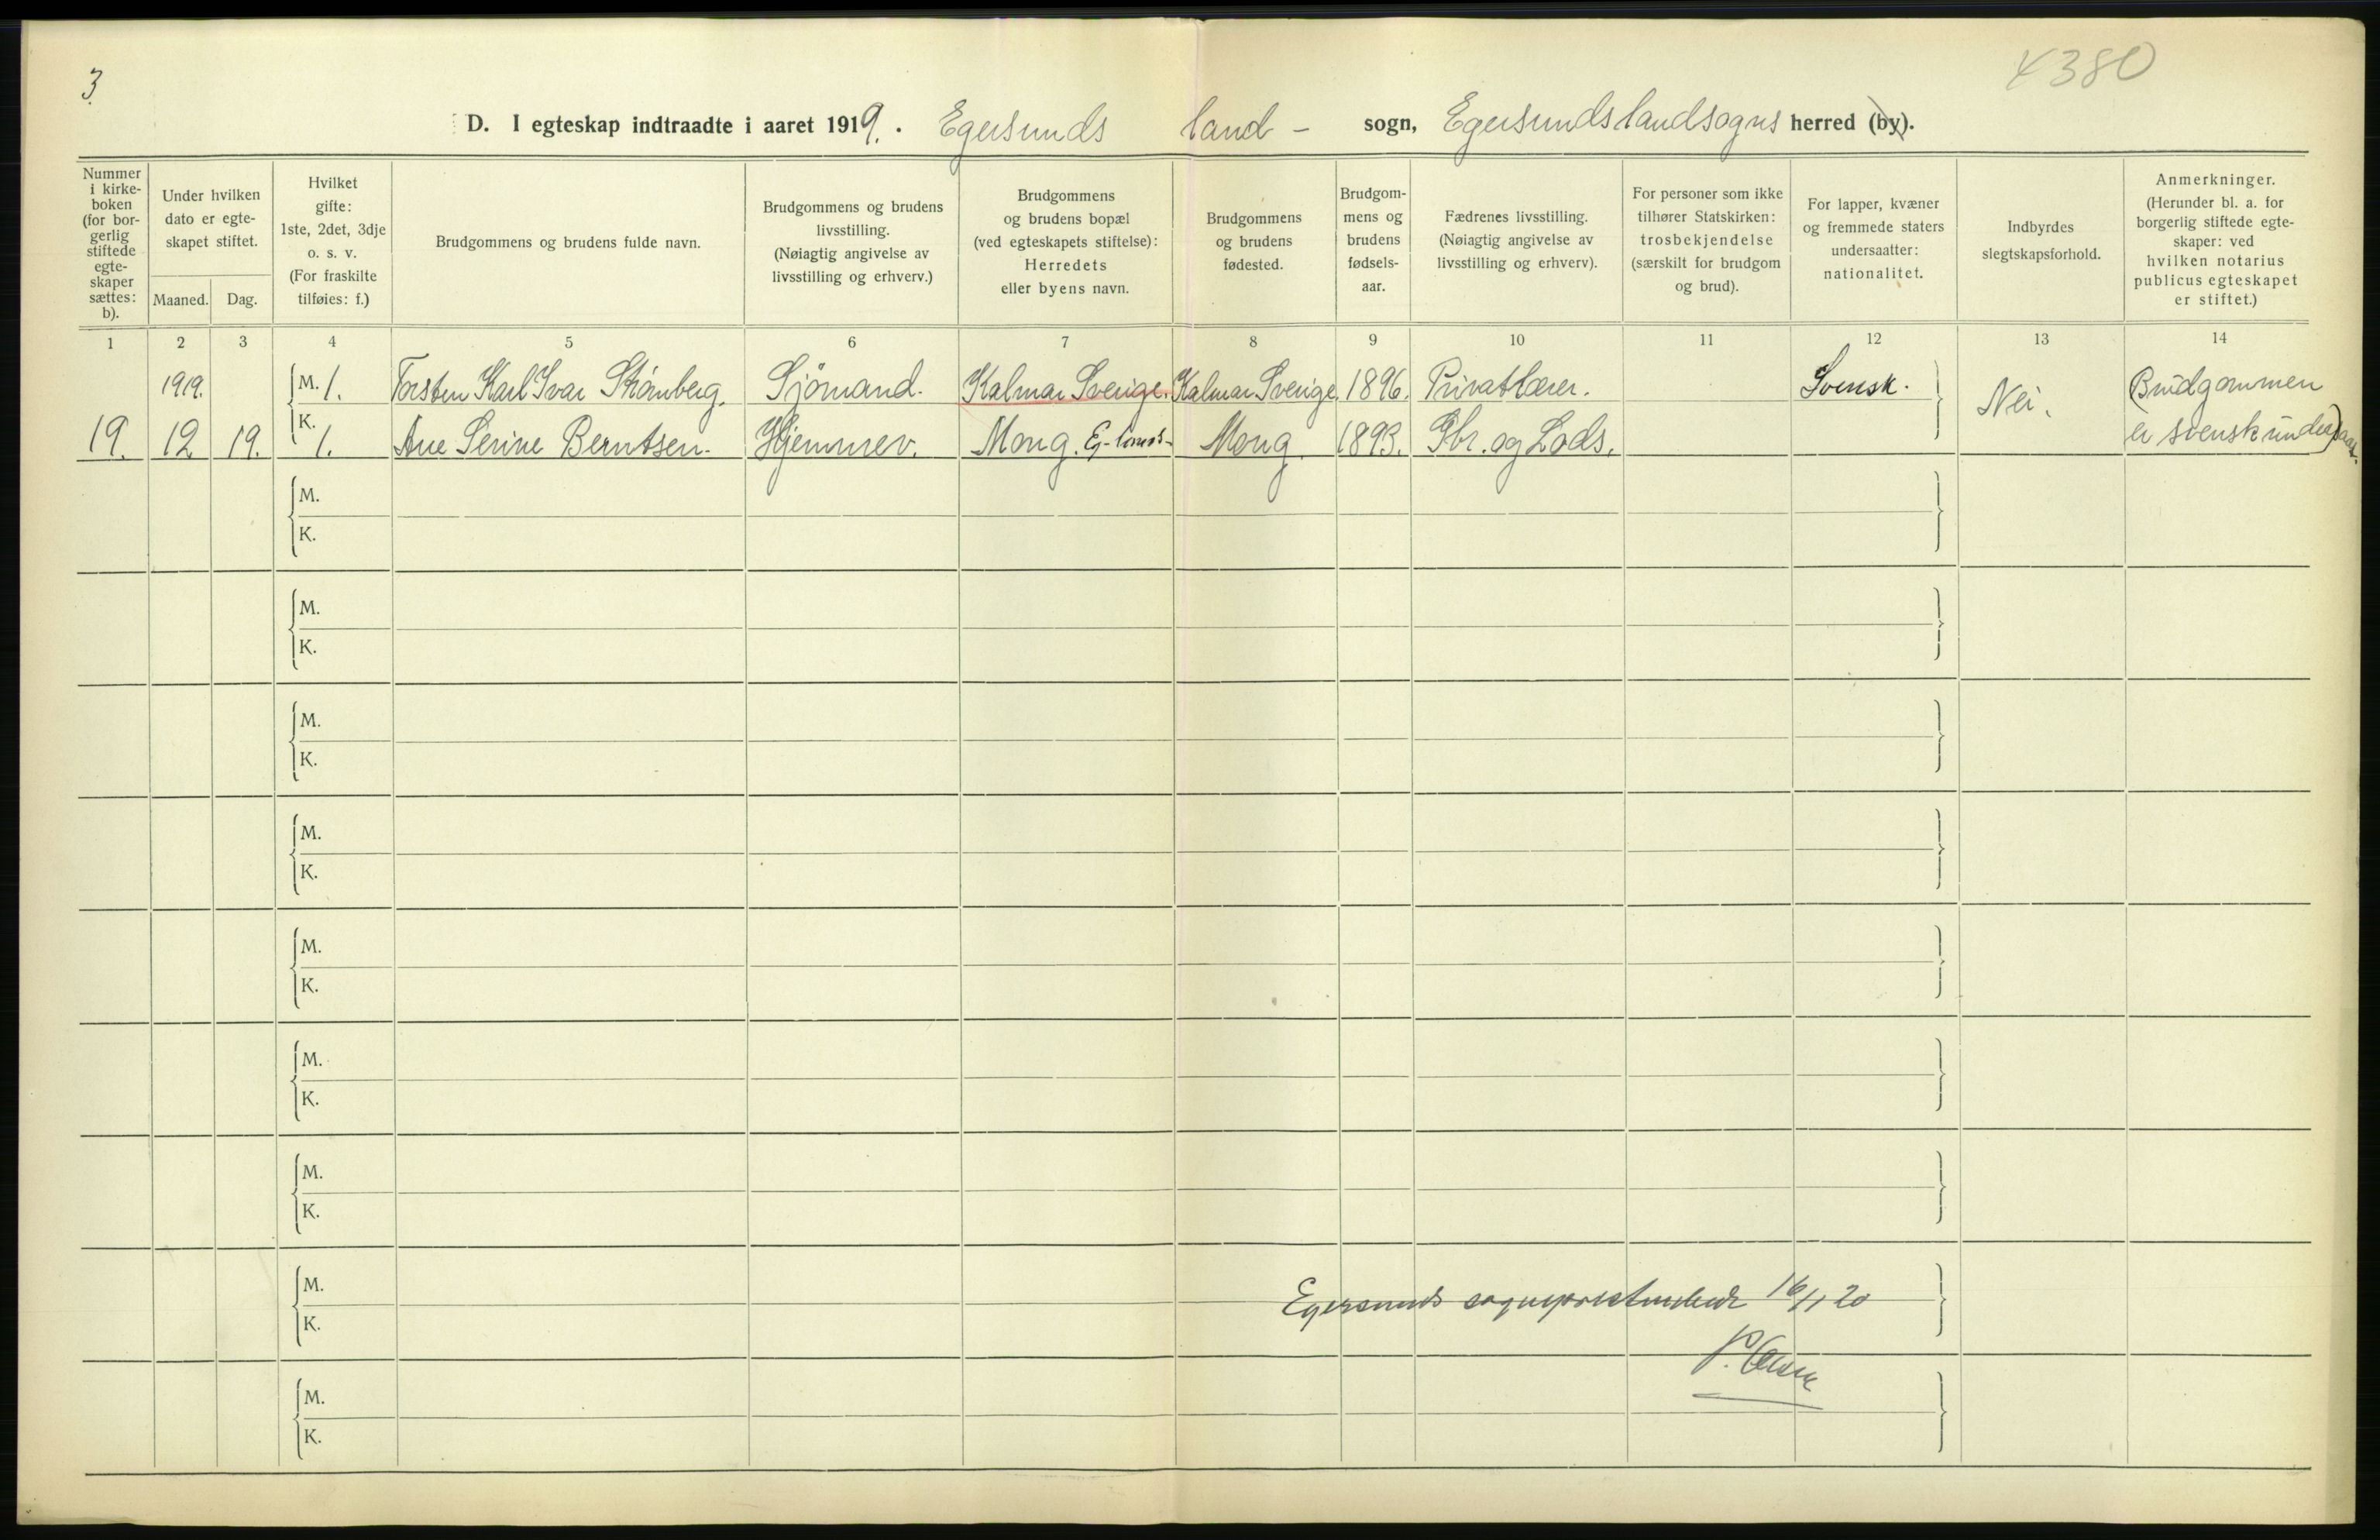 3.
4380
D. I egteskap indtraadte i aaret 1919. Egersunds land- sogn, Egersundslandsogns herred (by).
Nummer i kirkeboken (for borgerlig stiftede egteskaper sættes: b).
Under hvilken dato er egteskapet stiftet.
Maaned. Dag.
Hvilket gifte: 1ste, 2det, 3dje o. s. v. (For fraskilte tilføies: f.)
Brudgommens og brudens fulde navn.
Brudgommens og brudens livsstilling. (Nøiagtig angivelse av livsstilling og erhverv.)
Brudgommens og brudens bopæl (ved egteskapets stiftelse): Herredets eller byens navn.
Brudgommens og brudens fødested.
Brudgommens og brudens fødselsaar.
Fædrenes livsstilling. (Nøiagtig angivelse av livsstilling og erhverv).
For personer som ikke tilhører Statskirken: trosbekjendelse (særskilt for brudgom og brud).
For lapper, kvæner og fremmede staters undersaatter: nationalitet.
Indbyrdes slegtskapsforhold.
Anmerkninger. (Herunder bl. a. for borgerlig stiftede egteskaper: ved hvilken notarius publicus egteskapet er stiftet.)
1 2 3 4 5 6 7 8 9 10 11 12 13 14
1919. M. 1. Torsten Karl Ivar Strömberg. Sjömand. Kalmar Sverige. Kalmar Sverige. 1896. Privatlærer. Svensk. Nei. (Brudgommen
19. 12 19. K. 1. Ane Serine Berntsen. Hjemmev. Mong. Eg-lands- Mong. 1893. Gbr. og Lods. er svensk undersaat).
M.
K.
M.
K.
M.
K.
M.
K.
M.
K.
M.
K.
M.
K.
M.
K.
Egersunds sogneprestembede 16/1 20
M.
K.